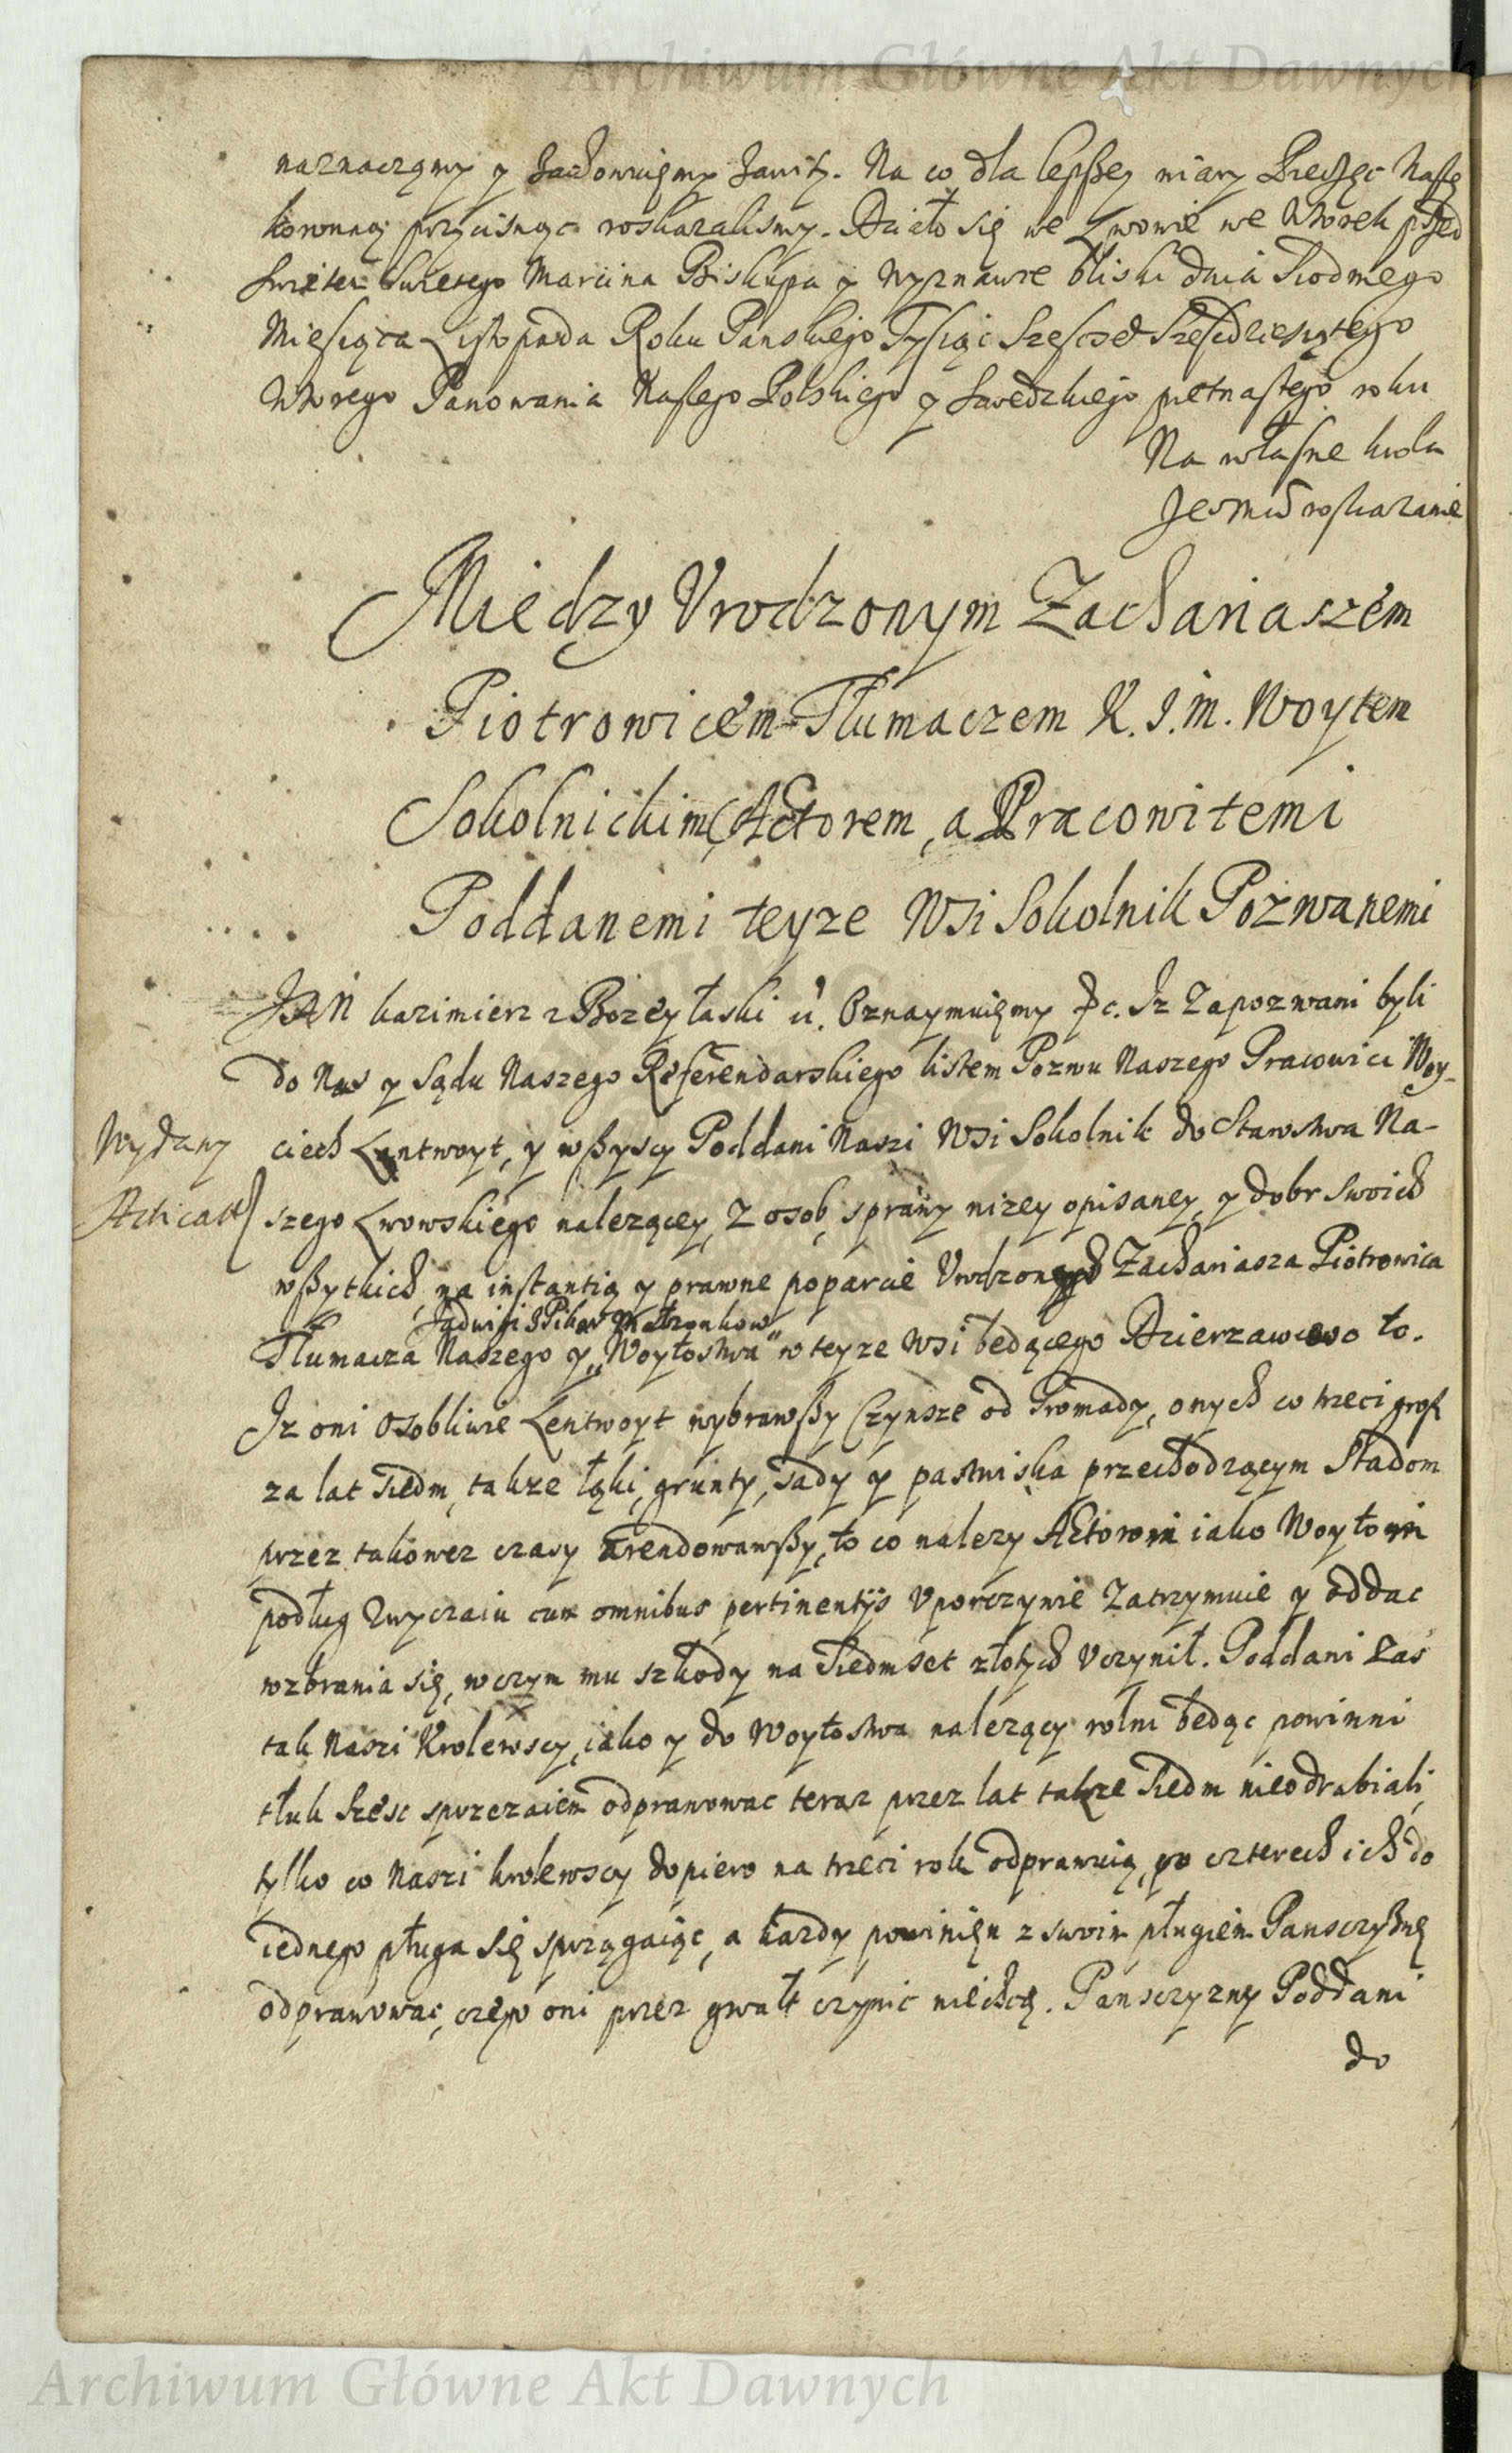 Archiwum Główne Akt Dawnych
naznaczamy y zachowuięmy zawitÿ. Na co dla lepszey wiary Pieczęc Naszę
koronną przycisnąc roskazalismy. Działo się we Lwowie we Wtorek przed
Swiętem Swiętego Marcina Biskupa y Wyznawce bliski dnia Siodmego
Miesiąca Listopada Roku Panskiego Tysiąc Szescset Szescdziesiątego
Wtorego Panowania Naszego Polskiego y Szwedzkiego piętnastego roku
Na własne krola
Jeomci roskazanie
Miedzy Vrodzonym Zachariaszem
Piotrowicem Tłumaczem K. J. M. Woytem
Sokolnickim, Actorem, a Pracowitemi
Poddanemi teyze Wsi Sokolnik Pozwanemi
JAN kazimierz z Bozey łaski &c. Oznaymuięmy &c. Iz Zapozwani byli
do Nas y Sądu Naszego Referendarskiego listem Pozwu Naszego Pracowici Woy-
Wydany
ciech Lentwoyt, y wszyscy Poddani Naszi Wsi Sokolnik do Starostwa Na-
szego Lwowskiego nalezącey, z osob, sprawy nizey opisaney, y dobr swoich
wszytkich, na instantią y prawne poparcie Vrodzonych Zachariasza Piotrowica
Jadwigi Małzonkow
Tłumacza Naszego y Woytostwa w teyze Wsi będącego Dzierzawcow o to.
Iz oni Osobliwie Lentwoyt wybrawszy Czynsze od Gromady, onych co trzeci grosz
za lat Siedm, takze łąki, grunty, sady y pastwiska przechodzącym Stadom
przez takowez czasy arendowawszy, to co nalezy Actorowi iako Woytowi
podług Zwyczaiu cum omnibus pertinentÿs Vporczywie Zatrzymuie y oddac
wzbrania się, w czym mu szkody na Siedmset złotych Vczynił. Poddani Zas
tak Naszi Krolewscy, iako y do Woytostwa nalezący rolni będąc powinni
tłuk Szesc sprzezaiem odprawowac teraz przez lat takze Siedm nieodrabiali,
tylko co Naszi krolewscy dopiero na trzeci rok odprawuią, po czterech ich do
iednego pługa się sprzągaiąc, a kazdy powinięn z swoim pługiem Panszczyznę
odprawowac, czego oni przez gwałt czynic niechcą. Panszczyzny Poddani
do
Archiwum Główne Akt Dawnych